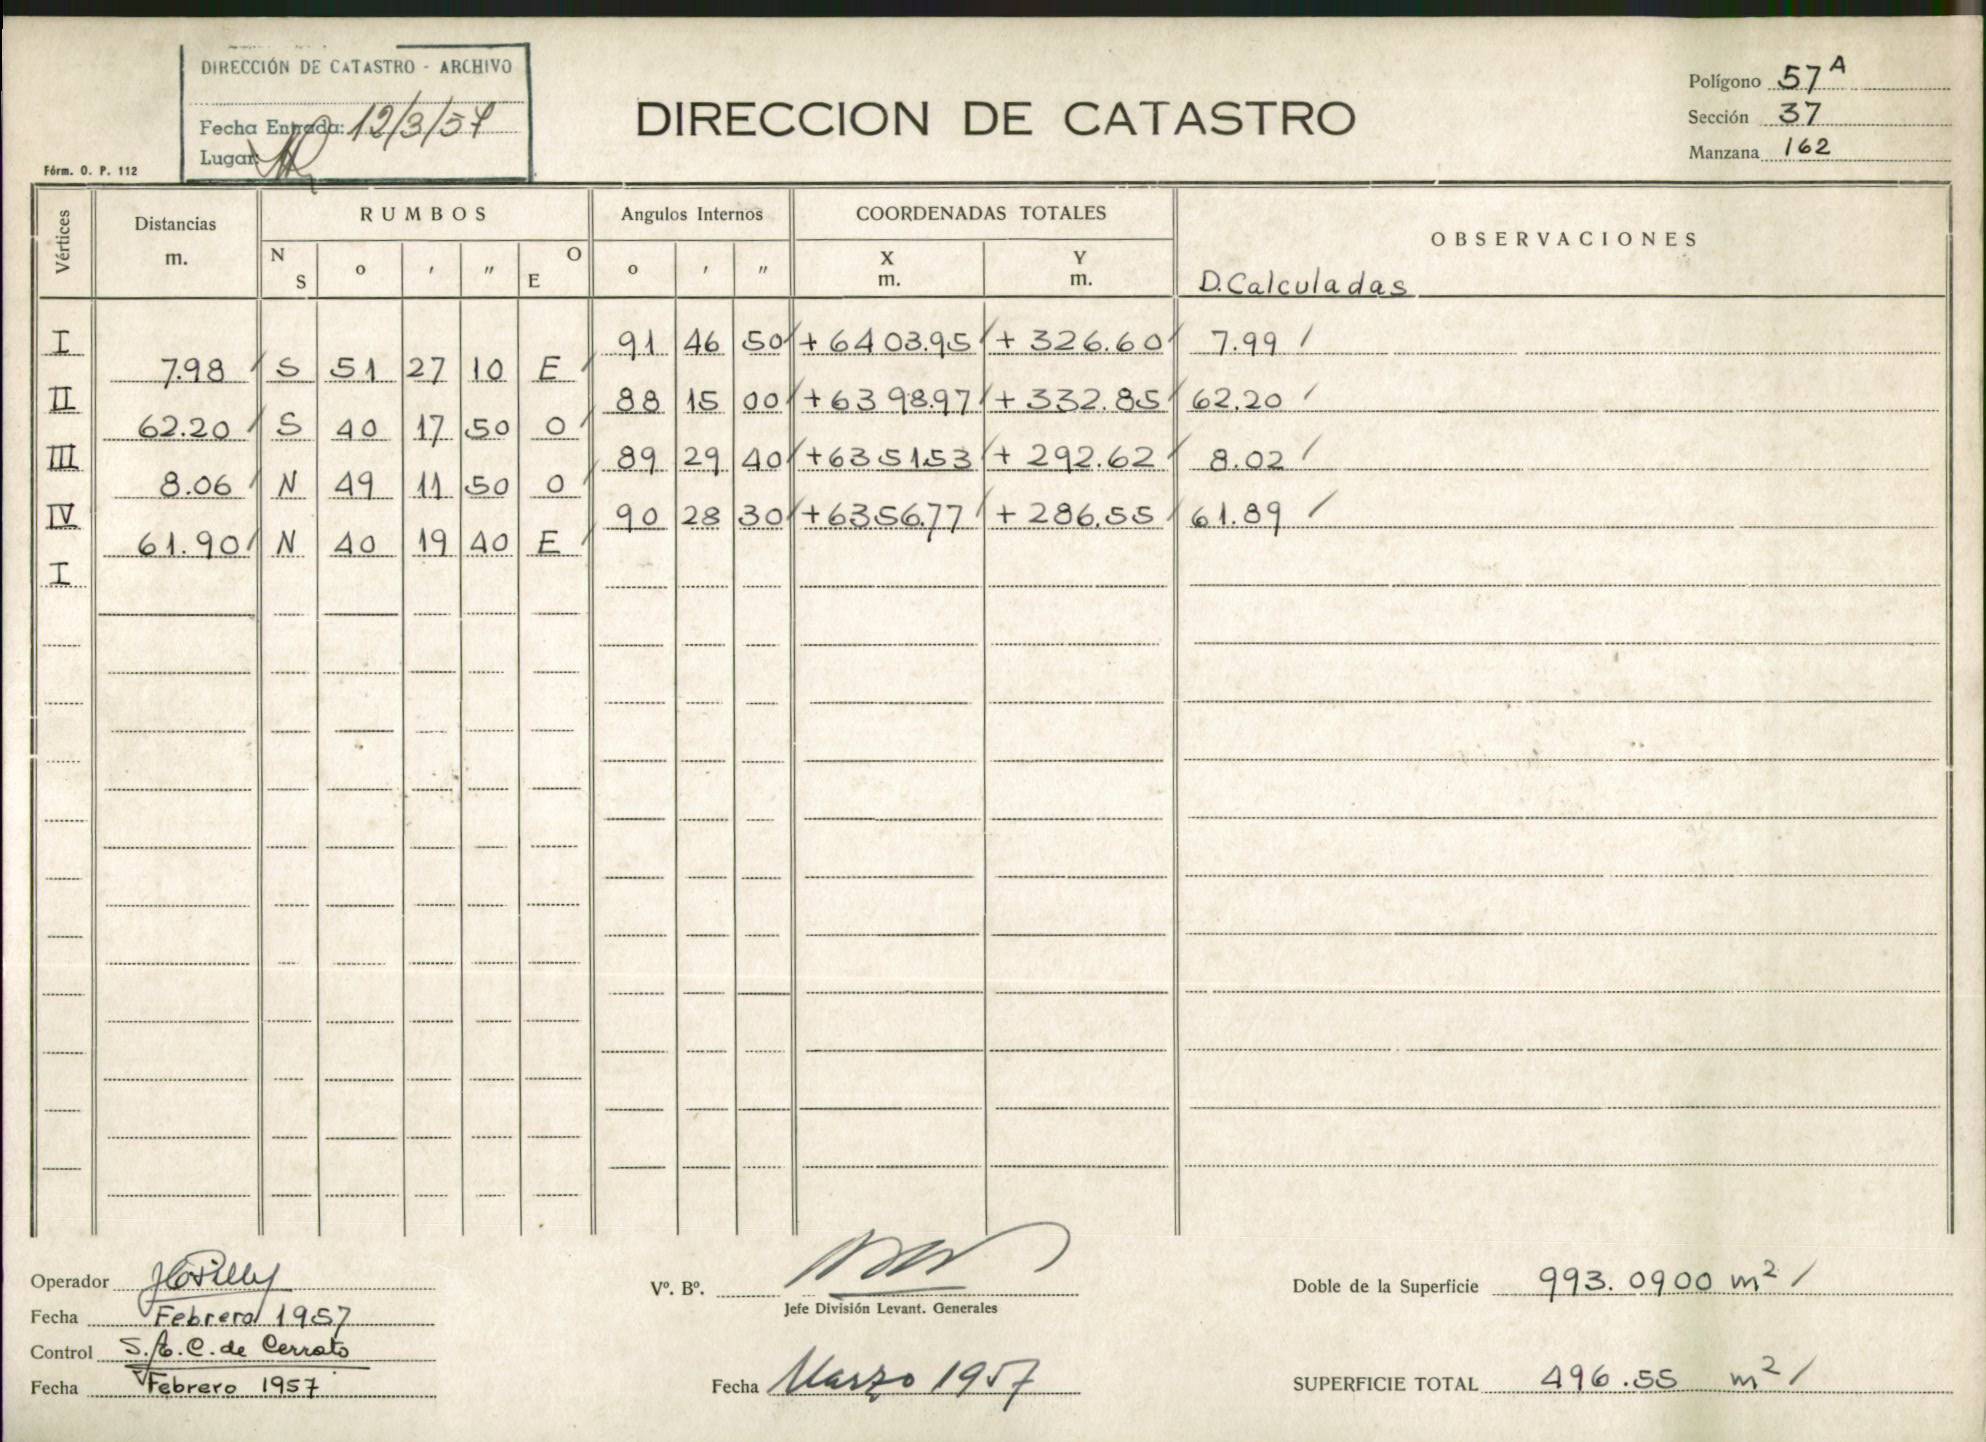 DIRECCIÓN DE CATASTRO - ARCHIVO
Fecha Entrada: 12/3/57
Lugar:
Fórm. O. P. 112
DIRECCION DE CATASTRO
Polígono 57A
Sección 37
Manzana 162
Vértices Distancias m. RUMBOS Angulos Internos COORDENADAS TOTALES OBSERVACIONES
N S o ' " O E o ' " X m. Y m. D. Calculadas
I 91 46 50 +6403.95 + 326.60 7.99
7.98 S 51 27 10 E
II 88 15 00 +6398.97 + 332.85 62.20
62.20 S 40 17 50 O
III 89 29 40 +6351.53 + 292.62 8.02
8.06 N 49 11 50 O
IV 90 28 30 +6356.77 + 286.55 61.89
61.90 N 40 19 40 E
I
Operador
Fecha Febrero 1957
Control S. A. C. de Cerrato
Fecha Febrero 1957
Vº. Bº.
Jefe División Levant. Generales
Fecha Marzo 1957
Doble de la Superficie 993.0900 m²
SUPERFICIE TOTAL 496.55 m²